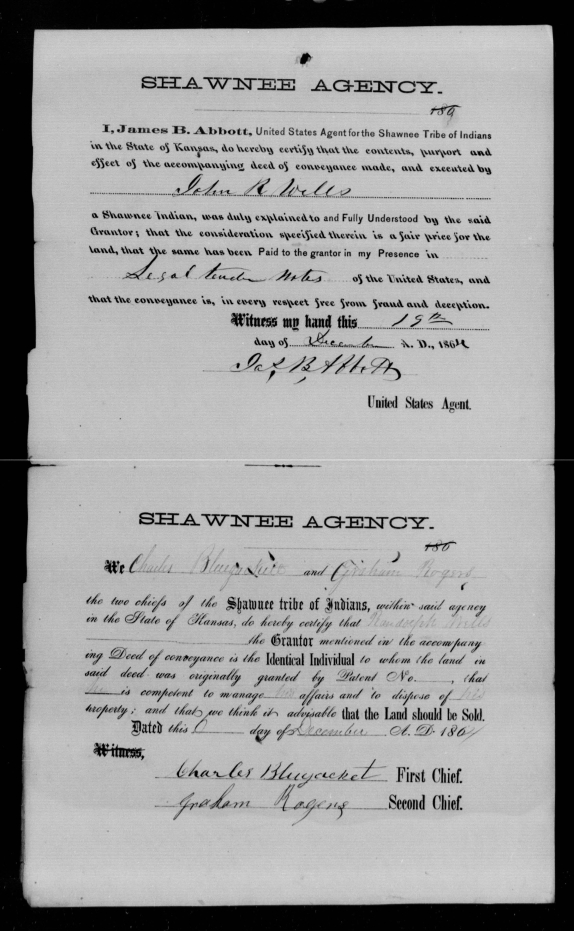 SHAWNEE AGENCY.
186
I, James B. Abbott, United States Agent for the Shawnee Tribe of Indians
in the State of Kansas, do hereby certify that the contents, purport and
effect of the accompanying deed of conveyance made, and executed by
John R Wells
a Shawnee Indian, was duly explained to and Fully Understood by the said
Grantor; that the consideration specified therein is a fair price for the
land, that the same has been Paid to the grantor in my Presence in
Legal tender Notes of the United States, and
that the conveyance is, in every respect free from fraud and deception.
Witness my hand this 19th
day of December A. D., 1864
Jas B Abbott
United States Agent.
SHAWNEE AGENCY.
186
We Charles Bluejacket and Graham Rogers
the two chiefs of the Shawnee tribe of Indians, within said agency
in the State of Kansas, do hereby certify that Wells
the Grantor mentioned in the accompany
ing Deed of conveyance is the Identical Individual to whom the land in
said deed was originally granted by Patent No. , that
is competent to manage his affairs and to dispose of his
property; and that we think it advisable that the Land should be Sold.
Dated this day of December A. D. 1864
Witness,
Charles Bluejacket First Chief.
Graham Rogers Second Chief.